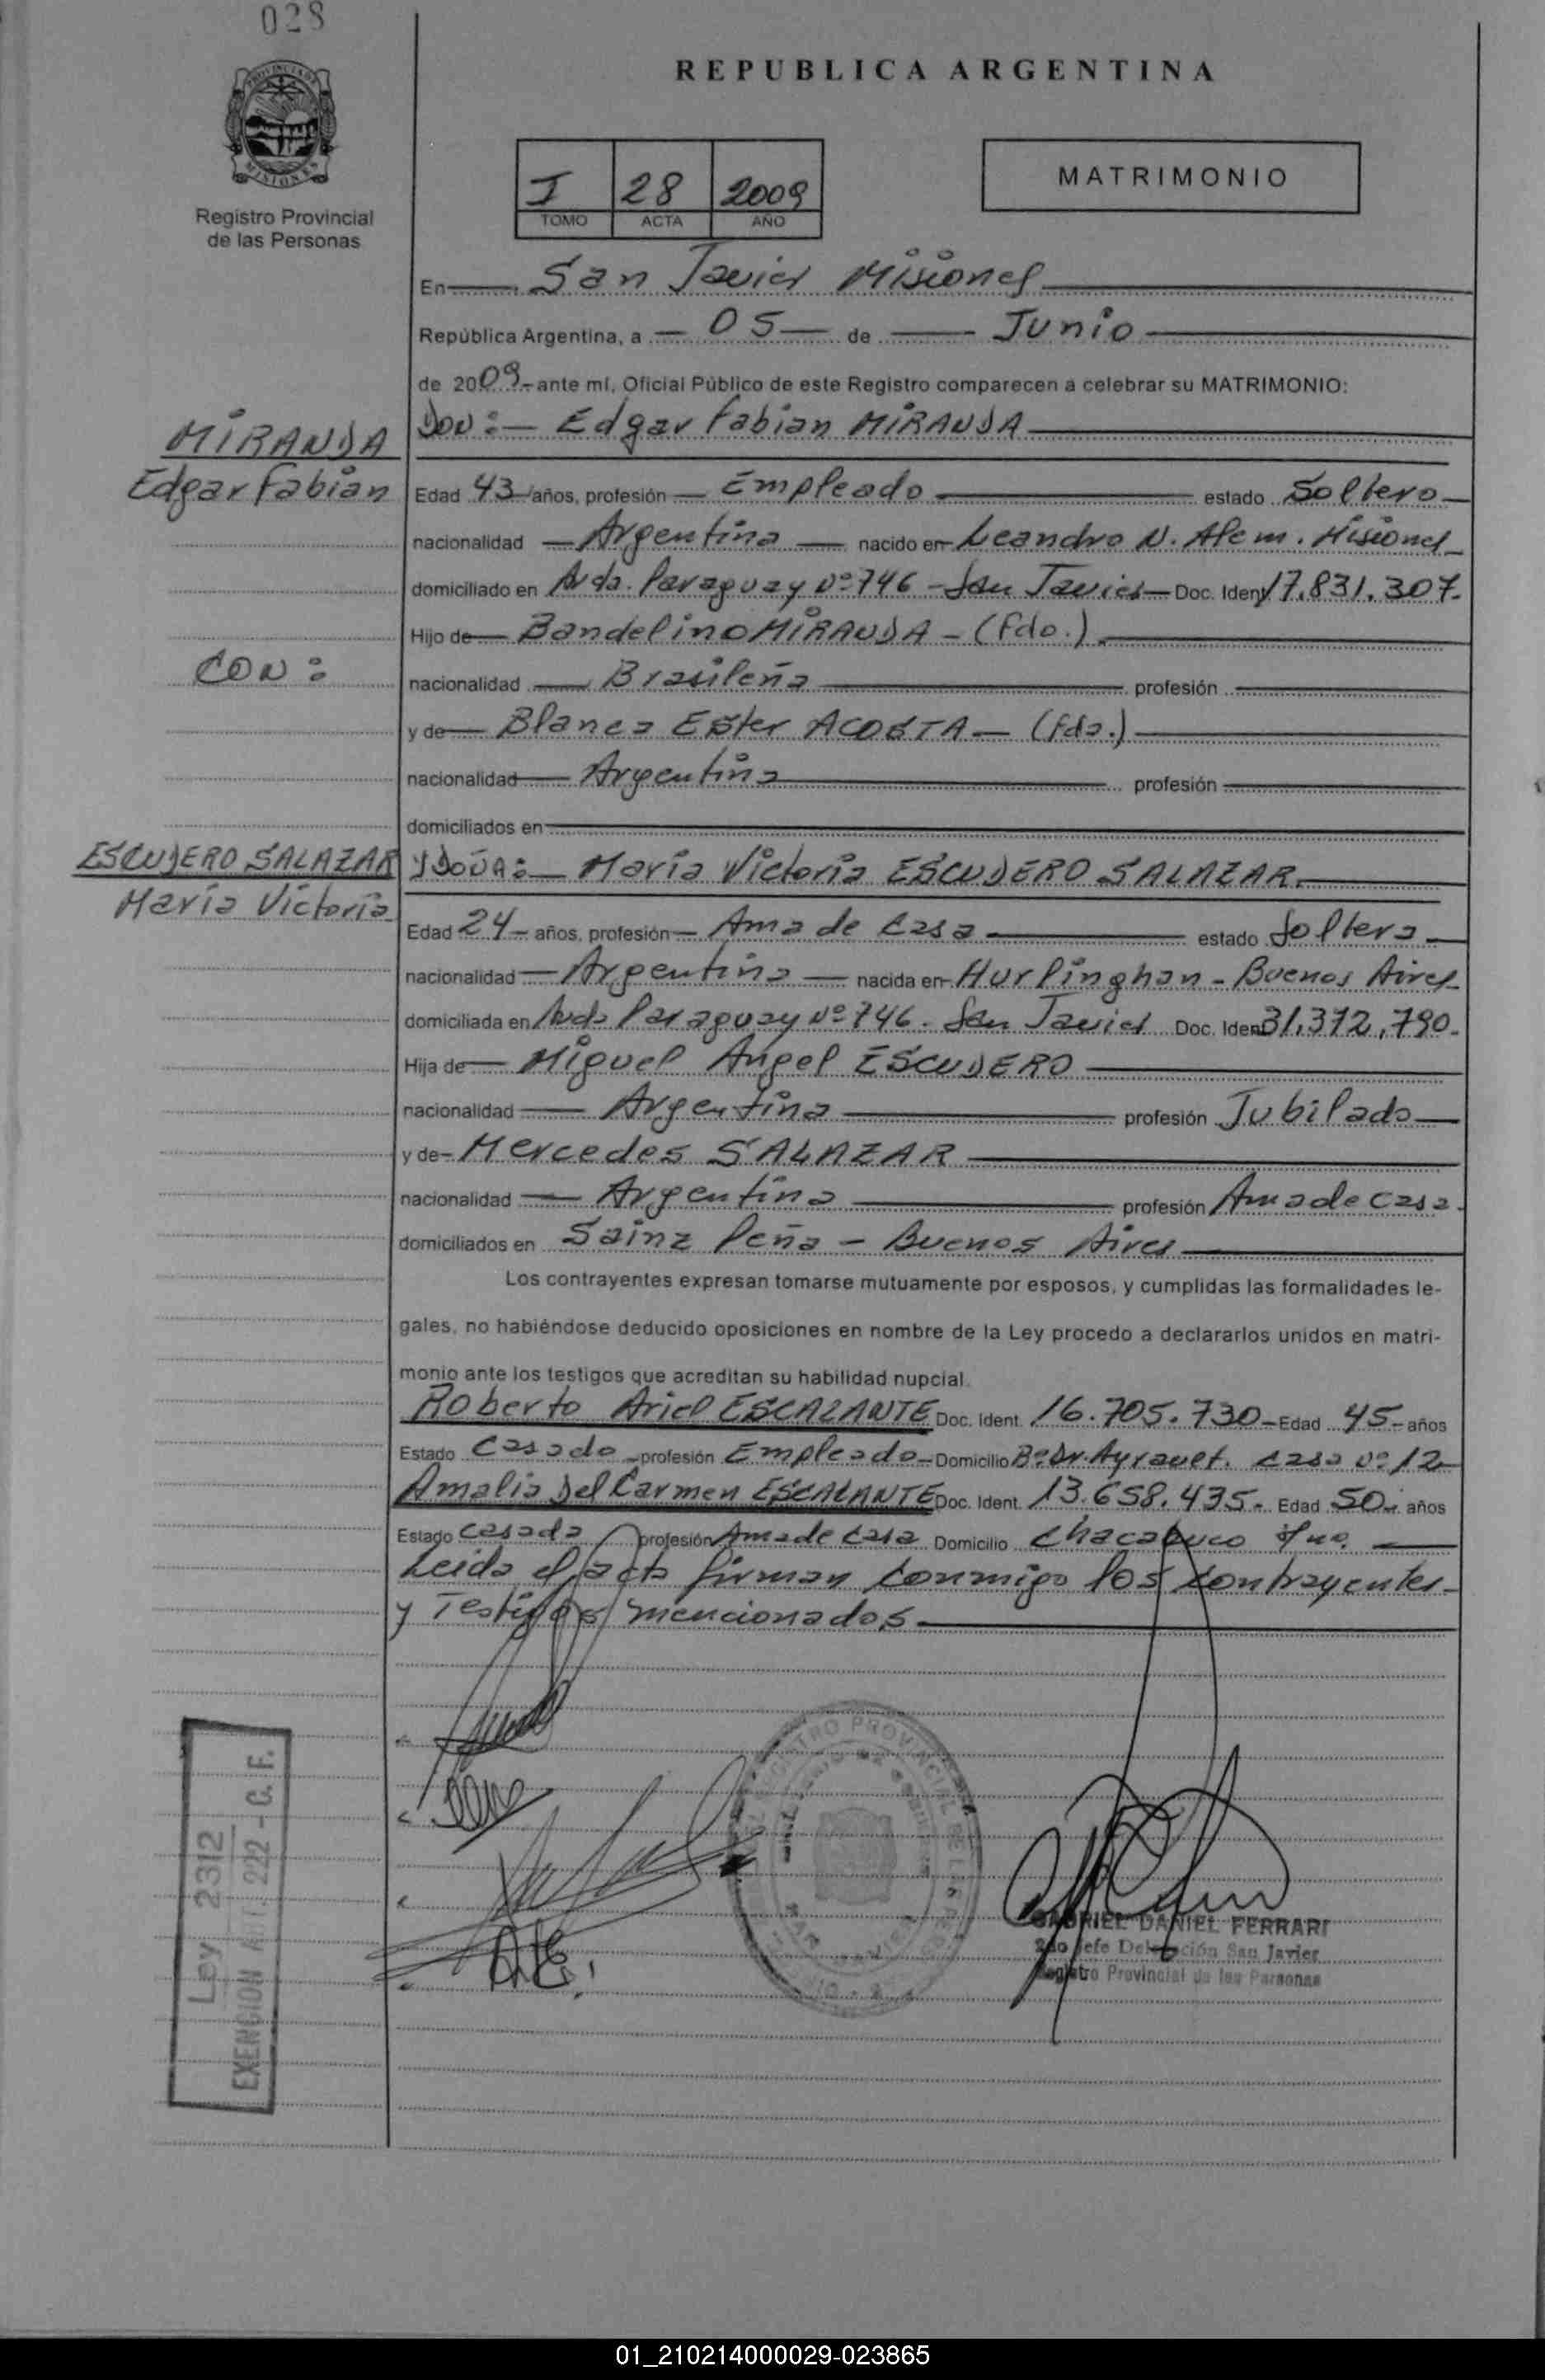 028
REPUBLICA ARGENTINA
PROVINCIA DE
MISIONES
Registro Provincial
de las Personas
I 28 2009
TOMO ACTA AÑO
MATRIMONIO
En San Javier Misiones
República Argentina, a 05 de Junio
de 2009.- ante mí, Oficial Público de este Registro comparecen a celebrar su MATRIMONIO:
MIRANDA
DON:- Edgar Fabian MIRANDA
Edgar Fabián
Edad 43 años, profesión Empleado estado Soltero
nacionalidad Argentina nacido en Leandro N. Alem. Misiones
domiciliado en Avda. Paraguay Nº 746 - San Javier Doc. Ident 17.831.307.
Hijo de Bandelino MIRANDA - (fdo.)
CON:
nacionalidad Brasileña profesión
y de Blanca Ester ACOSTA - (fda.)
nacionalidad Argentina profesión
domiciliados en
ESCUDERO SALAZAR
Y DOÑA:- María Victoria ESCUDERO SALAZAR.
María Victoria
Edad 24 años, profesión Ama de Casa estado Soltera
nacionalidad Argentina nacida en Hurlinghan - Buenos Aires
domiciliada en Avda Paraguay Nº 746. San Javier Doc. Ident 31,372,790.
Hija de Miguel Angel ESCUDERO
nacionalidad Argentina profesión Jubilado
y de Mercedes SALAZAR
nacionalidad Argentina profesión Ama de Casa.
domiciliados en Sainz Peña - Buenos Aires
Los contrayentes expresan tomarse mutuamente por esposos, y cumplidas las formalidades le-
gales, no habiéndose deducido oposiciones en nombre de la Ley procedo a declararlos unidos en matri-
monio ante los testigos que acreditan su habilidad nupcial.
Roberto Ariel ESCALANTE Doc. Ident. 16.705.730 - Edad 45 - años
Estado Casado profesión Empleado - Domicilio Bº Dr. Ayrauet. casa Nº 12
Amalia Del Carmen ESCALANTE Doc. Ident. 13.658.435 - Edad 50 años
Estado casada profesión Ama de Casa Domicilio Chacabuco
Leida el acta firman conmigo los contrayentes
y Testigos mencionados
REGISTRO PROVINCIAL DE LAS PERSONAS
A.E.
GABRIEL DANIEL FERRARI
2do Jefe Delegación San Javier
Registro Provincial de las Personas
Ley 2312
EXENCION Art. 222 - C. F.
01_210214000029-023865